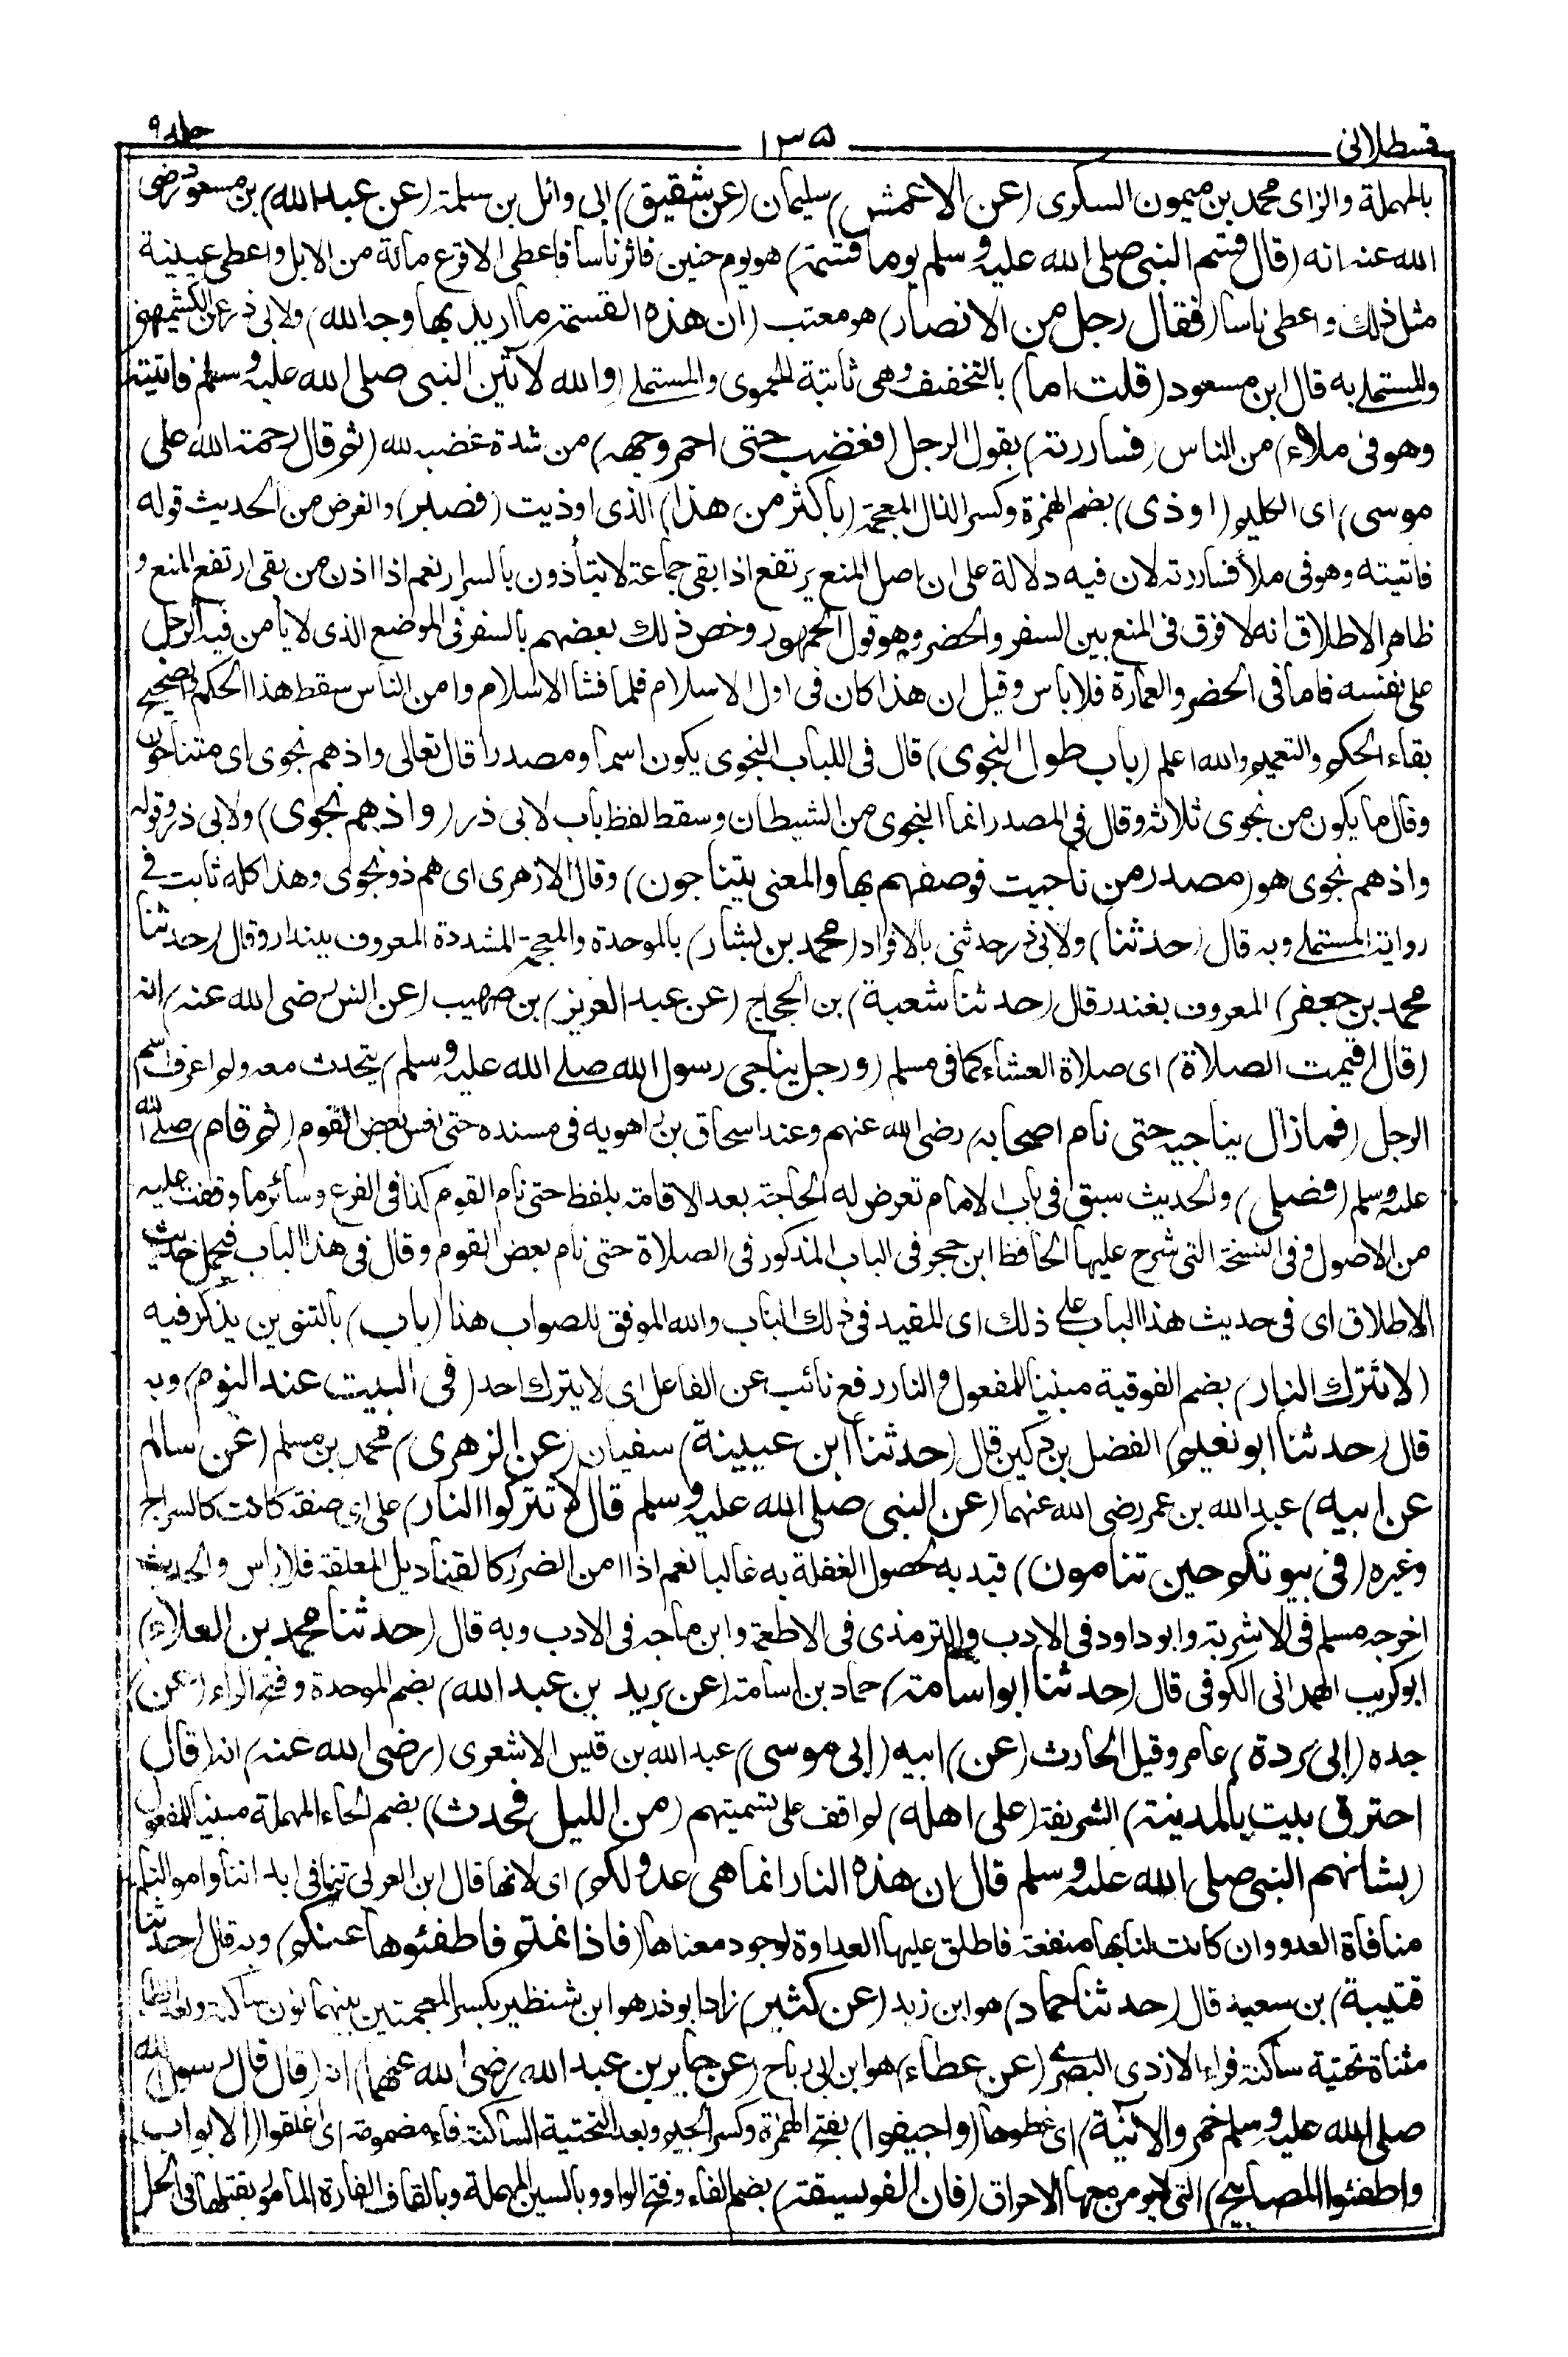 قسطلانی ١٣٥ جلد ٩
بالمهملة والزاى محمد بن ميمون السكرى (عن الاعمش) سليمان (عن شقيق) ابى وائل بن سلمة (عن عبد الله) بن مسعود رضى
الله عنه انه (قال قسم النبى صلى الله عليه وسلم يوما قسمة) هو يوم حنين فاثر ناسا فاعطى الاقرع مائة من الابل واعطى عيينة
مثل ذلك واعطى ناسا (فقال رجل من الانصار) هو معتب (ان هذه القسمة ما اريد بها وجه الله) ولابى ذر عن الكشميهنى
والمستملى به قال ابن مسعود (قلت اما) بالتخفيف وهى ثابتة للحموى والمستملى (والله لاتين النبى صلى الله عليه وسلم فاتيته
وهو فى ملاء) من الناس (فساررته) بقول الرجل (فغضب حتى احمر وجهه) من شدة غضبه لله (ثم قال رحمة الله على
موسى) اى الكليم (اوذى) بضم الهمزة وكسر الذال المعجمة (باكثر من هذا) الذى اوذيت (فصبر) والغرض من الحديث قوله
فاتيته وهو فى ملأ فساررته لان فيه دلالة على ان اصل المنع يرتفع اذا بقى جماعة لا يتأذون بالسرار نعم اذا اذن من بقى ارتفع المنع و
ظاهر الاطلاق انه لا فرق فى المنع بين السفر والحضر وهو قول الجمهور وخص ذلك بعضهم بالسفر فى الموضع الذى لا يأمن فيه الرجل
على نفسه فاما فى الحضر والعمارة فلا بأس وقيل ان هذا كان فى اول الاسلام فلما فشا الاسلام وامن الناس سقط هذا الحكم والصحيح
بقاء الحكم والتعميم والله اعلم (باب طول النجوى) قال فى اللباب النجوى يكون اسما ومصدرا قال تعالى واذ هم نجوى اى متناجون
وقال ما يكون من نجوى ثلاثة وقال فى المصدر انما النجوى من الشيطان وسقط لفظ باب لابى ذر (واذ هم نجوى) ولابى ذر وقوله
واذ هم نجوى هو (مصدر من ناجيت فوصفهم بها والمعنى يتناجون) وقال الازهرى اى هم ذو نجوى وهذا كله ثابت فى
رواية المستملى وبه قال (حدثنا) ولابى ذر حدثنى بالافراد (محمد بن بشار) بالموحدة والمعجمة المشددة المعروف ببندار وقال (حدثنا
محمد بن جعفر) المعروف بغندر قال (حدثنا شعبة) بن الحجاج (عن عبد العزيز) بن صهيب (عن انس رضى الله عنه) انه
(قال اقيمت الصلاة) اى صلاة العشاء كما فى مسلم (ورجل يناجى رسول الله صلى الله عليه وسلم) يتحدث معه ولم اعرف اسم
الرجل (فما زال يناجيه حتى نام اصحابه) رضى الله عنهم وعند اسحاق بن راهويه فى مسنده حتى نعس بعض القوم (ثم قام) صلى الله
عليه وسلم (فصلى) والحديث سبق فى باب الامام تعرض له الحاجة بعد الاقامة بلفظ حتى نام القوم كذا فى الفرع وسائر ما وقفت عليه
من الاصول وفى النسخة التى شرح عليها الحافظ ابن حجر فى الباب المذكور فى الصلاة حتى نام بعض القوم وقال فى هذا الباب فيحمل حديث
الاطلاق اى فى حديث هذا الباب على ذلك اى المقيد فى ذلك الباب والله الموفق للصواب هذا (باب) بالتنوين يذكر فيه
(لا تترك النار) بضم الفوقية مبنيا للمفعول والنار رفع نائب عن الفاعل اى لا يترك احد (فى البيت عند النوم) وبه
قال (حدثنا ابو نعيم) الفضل بن دكين قال (حدثنا ابن عيينة) سفيان (عن الزهرى) محمد بن مسلم (عن سالم
عن ابيه) عبد الله بن عمر رضى الله عنهما (عن النبى صلى الله عليه وسلم قال لا تتركوا النار) على اى صفة كانت كالسراج
وغيره (فى بيوتكم حين تنامون) قيد به لحصول الغفلة به غالبا نعم اذا امن الضرر كالقناديل المعلقة فلا بأس والحديث
اخرجه مسلم فى الاشربة وابو داود فى الادب والترمذى فى الاطعمة وابن ماجه فى الادب وبه قال (حدثنا محمد بن العلاء)
ابو كريب الهمدانى الكوفى قال (حدثنا ابو اسامة) حماد بن اسامة (عن بريد بن عبد الله) بضم الموحدة وفتح الراء (عن)
جده (ابى بردة) عامر وقيل الحارث (عن) ابيه (ابى موسى) عبد الله بن قيس الاشعرى (رضى الله عنه) انه (قال
احترق بيت بالمدينة) الشريفة (على اهله) لم اقف على تسميتهم (من الليل فحدث) بضم الحاء المهملة مبنيا للمفعول
(بشانهم النبى صلى الله عليه وسلم قال ان هذه النار انما هى عدو لكم) اى لانها قال ابن العربى تنافى ابداننا واموالنا
منافاة العدو وان كانت لنا بها منفعة فاطلق عليها العداوة لوجود معناها (فاذا نمتم فاطفئوها عنكم) وبه قال (حدثنا
قتيبة) بن سعيد قال (حدثنا حماد) هو ابن زيد (عن كثير) زاد ابو ذر هو ابن شنظير بكسر المعجمتين بينهما نون ساكنة وبعد الظاء
مثناة تحتية ساكنة فراء الازدى البصرى (عن عطاء) هو ابن ابى رباح (عن جابر بن عبد الله رضى الله عنهما) انه (قال قال رسول الله
صلى الله عليه وسلم خمروا الآنية) اى غطوها (واجيفوا) بفتح الهمزة وكسر الجيم وبعد التحتية الساكنة فاء مضمومة اى اغلقوا (الابواب
واطفئوا المصابيح) التى لا يومن معها الاحراق (فان الفويسقة) بضم الفاء وفتح الواو وبالسين المهملة وبالقاف الفارة المأمور بقتلها فى الحل